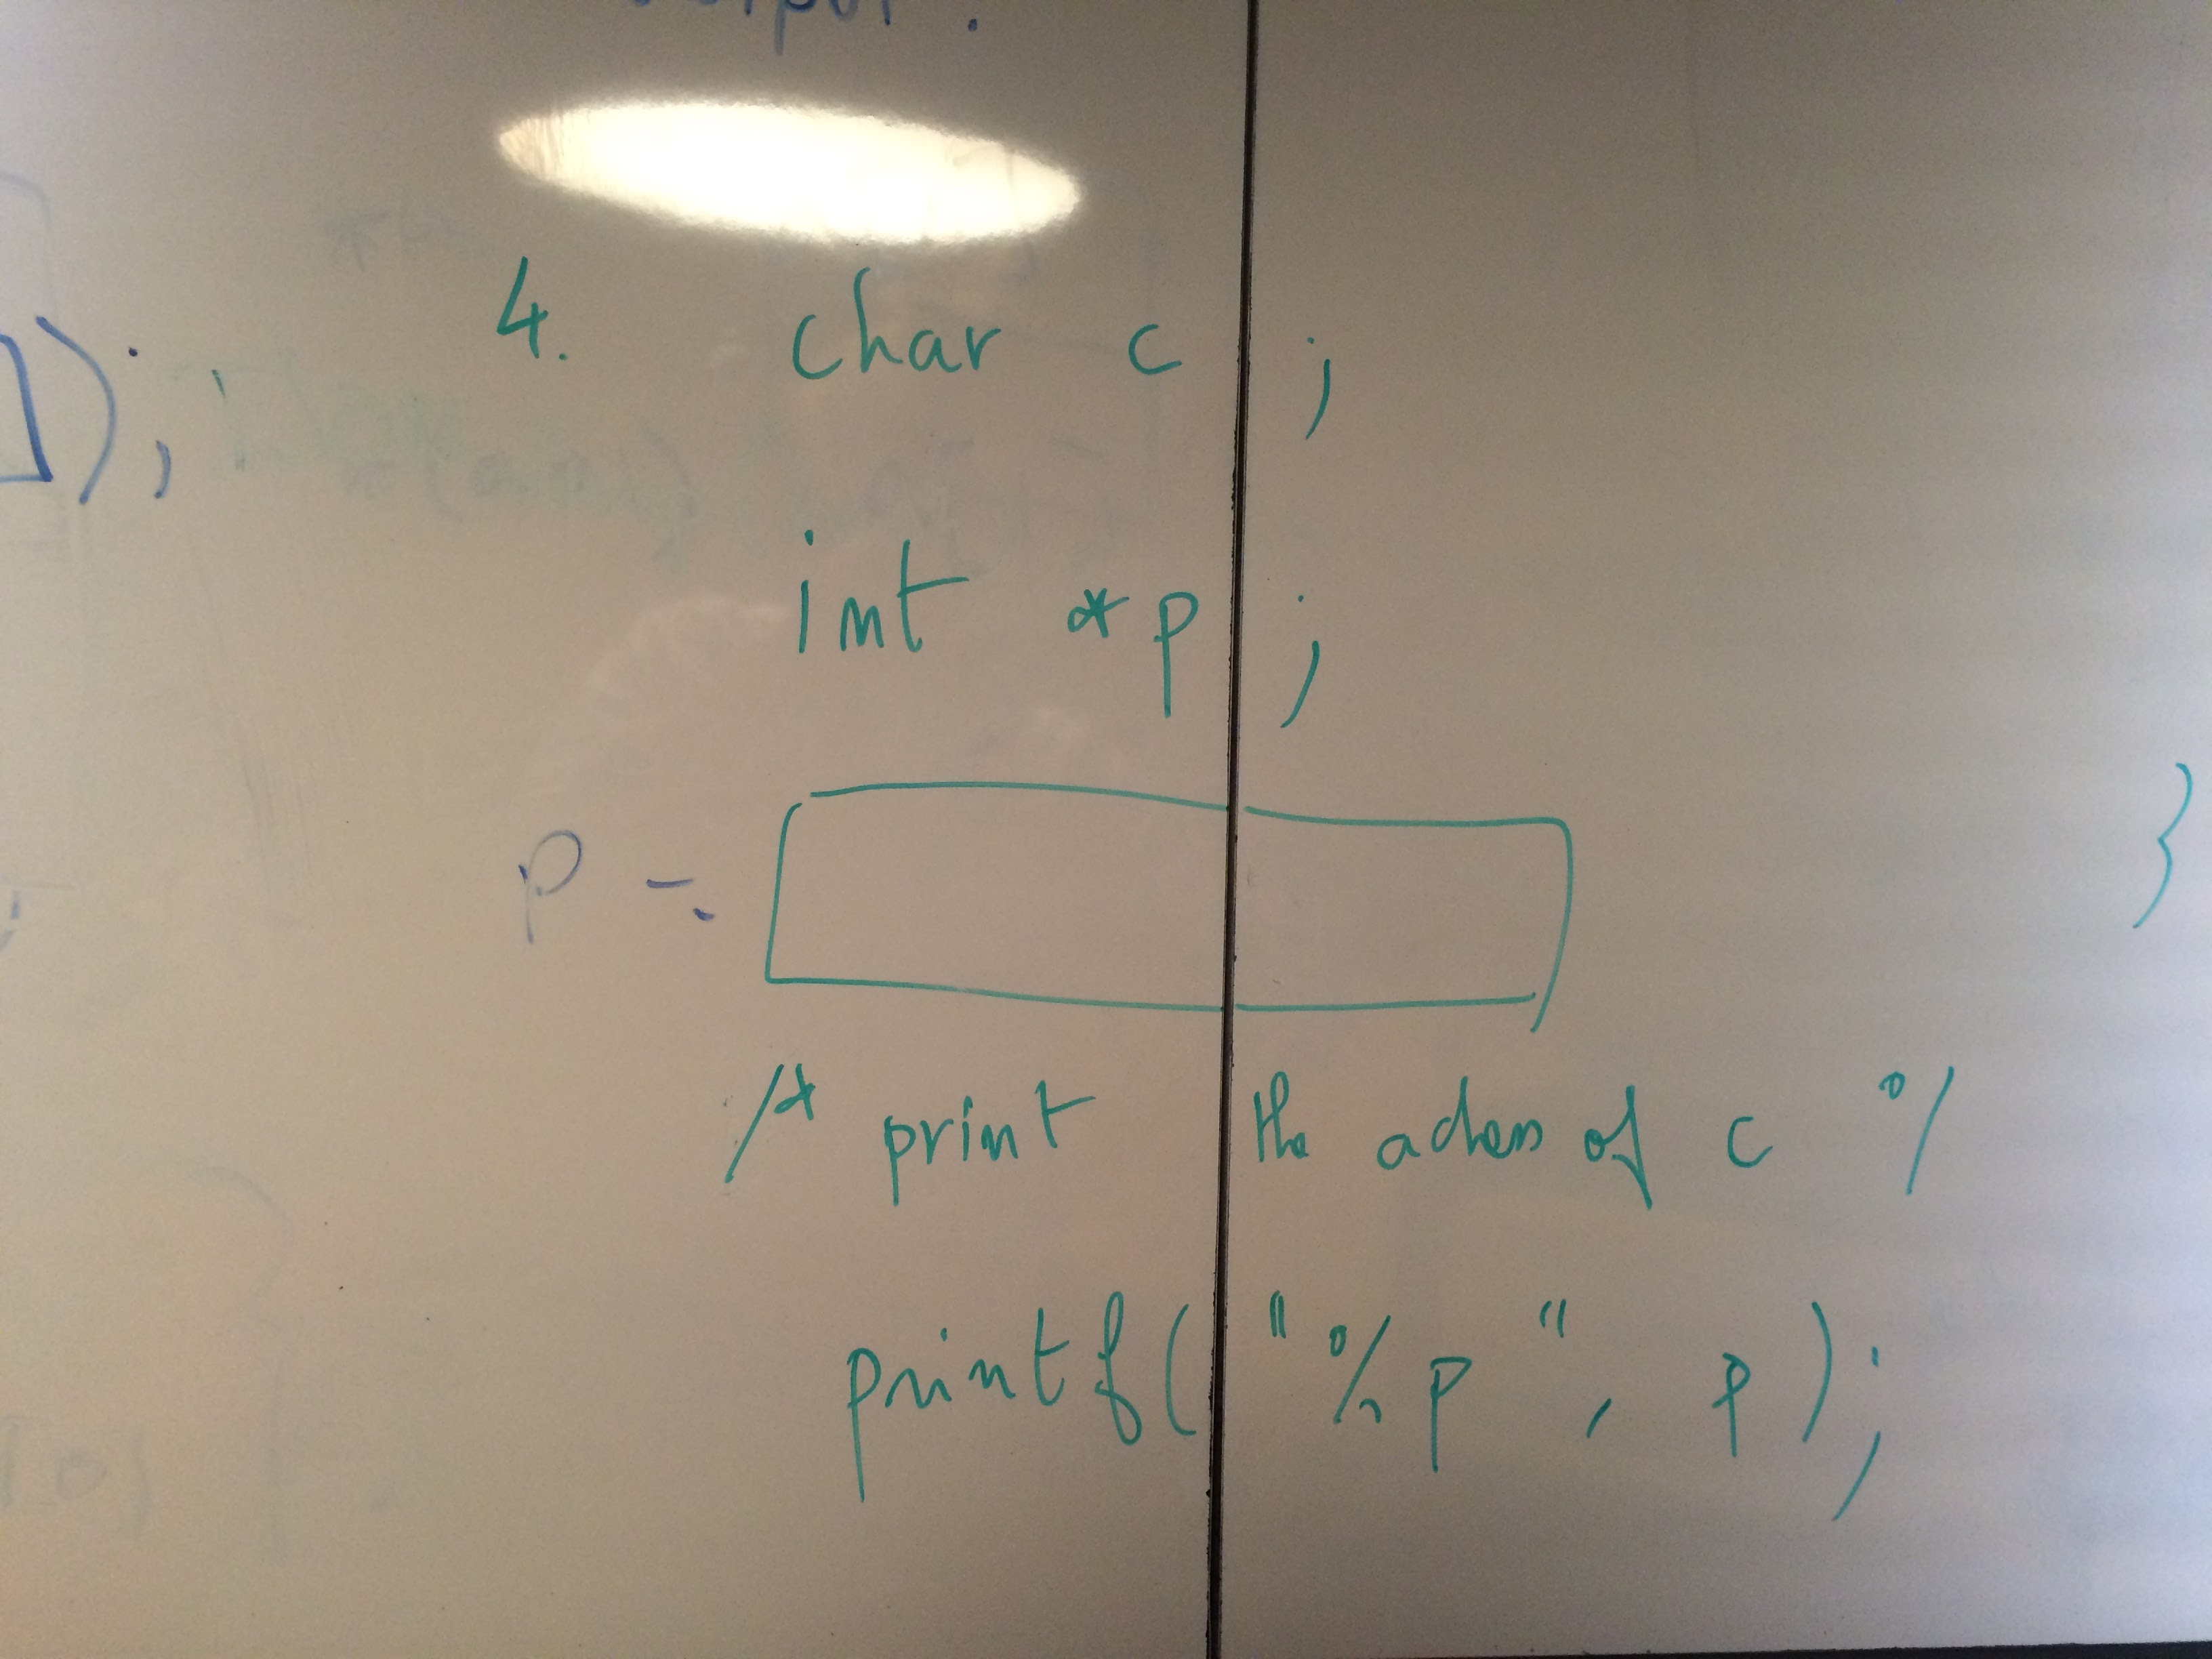 );
4. char c ;
int *p ;
p =
}
/* print the adress of c */
printf( "%p", p);